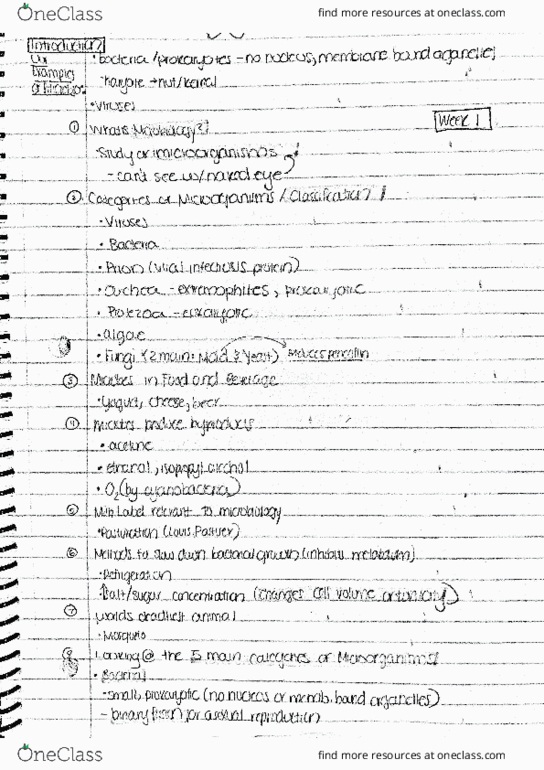 OneClass find more resources at oneclass.com
Introduction
• bacteria/prokaryotes - no nucleus, membrane bound organelles
Examples
karyote → nut/kernel
• Viruses
Week 1
① What is Microbiology?
• Study of microorganisms
- can't see w/ naked eye
② Categories of Microorganisms / Classification
• Viruses
• Bacteria
• Prion (viral infectious protein)
• Archea - extremophites, prokaryotic
• Protozoa - eukaryotic
• algae
• Fungi (2 main: Mold & Yeast) produces penicillin
③ Microbes in Food and Beverage
• Yogurt, cheese, beer
④ Microbes produce byproducts
• acetone
• ethanol, isopropyl alcohol
• O₂ (by cyanobacteria)
⑤ Label relevant to microbiology
• (Louis Pasteur)
⑥ Methods to slow down bacterial growth (inhibits metabolism)
• Refrigeration
↑ salt/sugar concentration (changes cell volume or tonicity)
⑦ worlds deadliest animal
• Mosquito
Looking @ the 5 main categories of Microorganisms
• Bacterial
- small, prokaryotic (no nucleus or memb. band organelles)
- binary fission for asexual reproduction
OneClass find more resources at oneclass.com